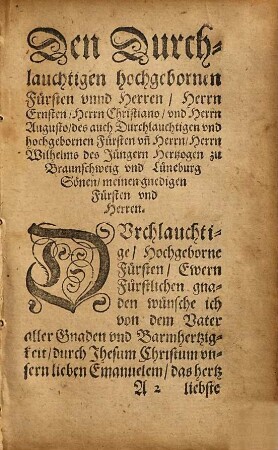 Den Durch⸗
lauchtigen hochgebornen
Fürsten vnnd Herren / Herrn
Ernsten / Herrn Christiano / vnd Herrn
Augusto / des auch Durchlauchtigen vnd
hochgebornen Fürsten vñ Herrn / Herrn
Wilhelms des Jüngern Hertzogen zu
Braunschweig vnd Lüneburg
Sönen / meinen gnedigen
Fürsten vnd
Herren.
DVrchlauchti⸗
ge / Hochgeborne
Fürsten / Ewern
Fürstlichen gna⸗
den wünsche ich
von dem Vater
aller Gnaden vnd Barmhertzig⸗
keit / durch Jhesum Christum vn⸗
sern lieben Emanuelem / das hertz
A 2 liebste